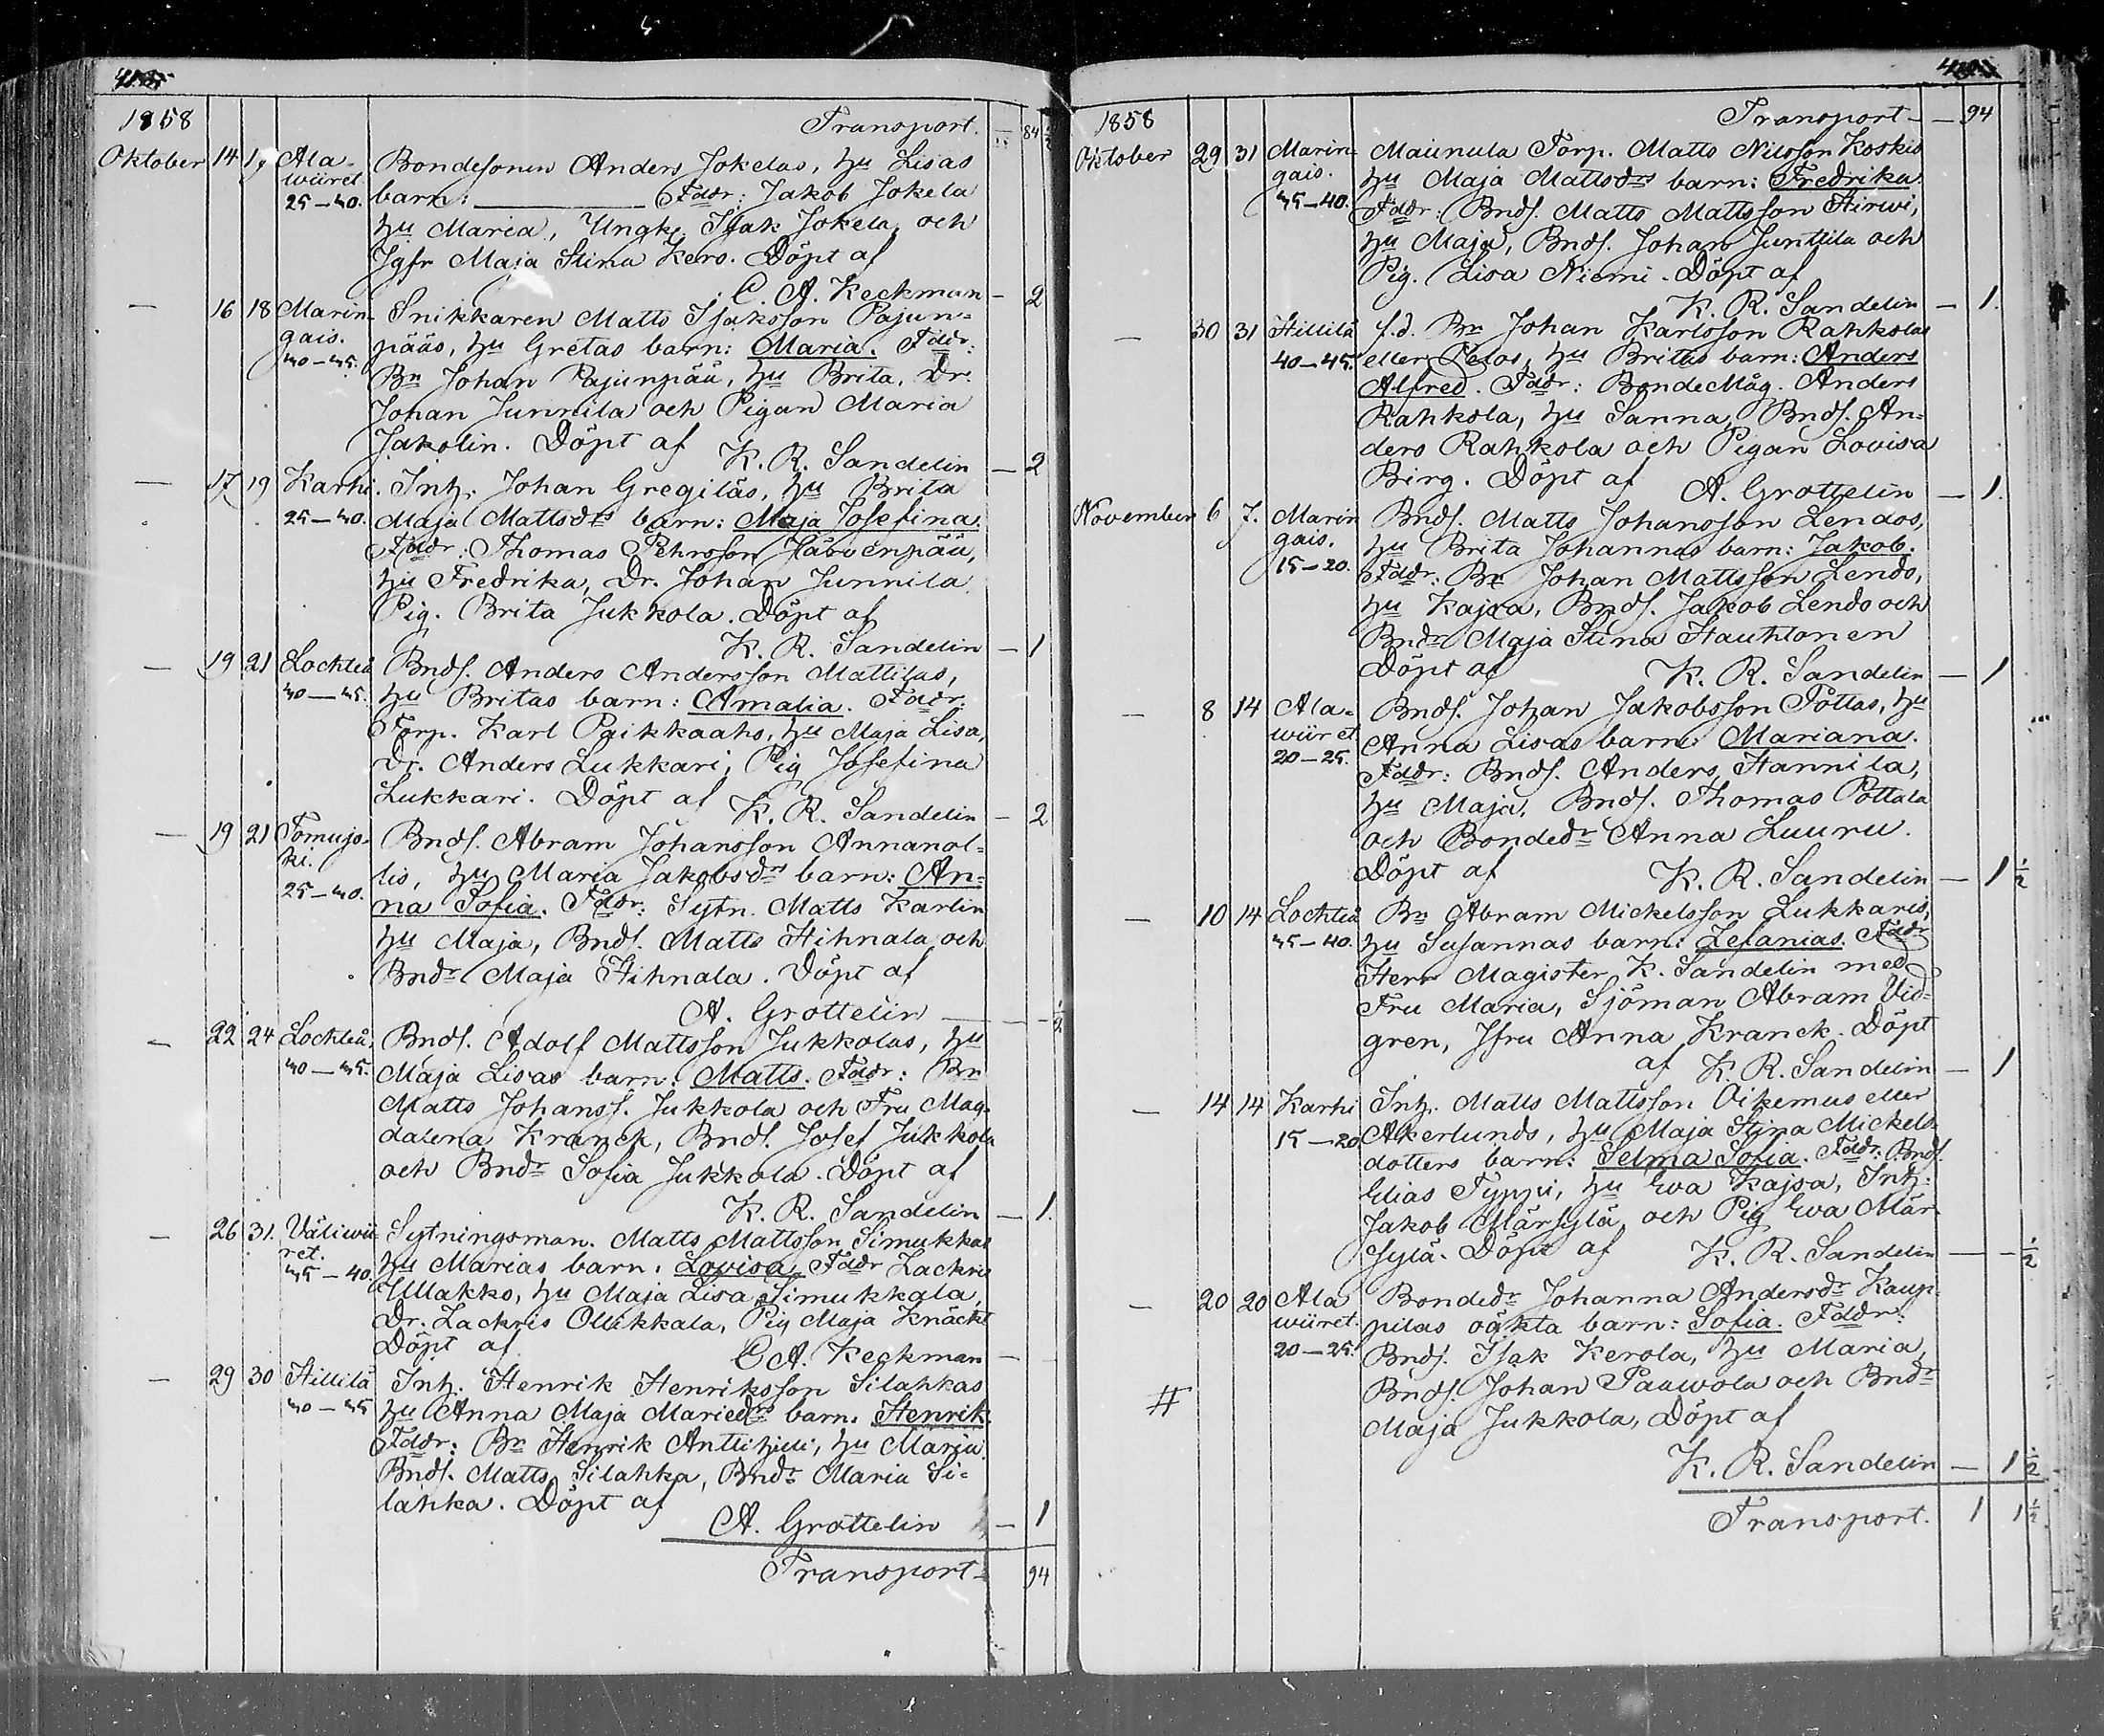 1858
Transport. 84 ½
Oktober 14 19 Ala- Bondesonen Anders Jokelas, hu Lisas
wiiret. 25–40. barn: ——— Fddr: Jakob Jokela
hu Maria, Ungk. Isak Jokela, och
Jgfr Maja Stina Kero. Döpt af
C. A. Keckman – 2
— 16 18 Marin- Snikkaren Matts Isaksson Pajun-
gais. pääs, hu Gretas barn: Maria. Fddr:
40–45. Bn Johan Pajunpää, hu Brita, Dr.
Johan Junnila och Pigan Maria
Jakolin. Döpt af K. R. Sandelin – 2
— 17 19 Karhi. Inh. Johan Gregiläs, hu Brita
25–40. Maja Mattsdrs barn: Maja Josefina.
Fddr: Thomas Pehrsson Järvenpää,
hu Fredrika, Dr. Johan Junnila.
Pig. Brita Jukkola. Döpt af
K. R. Sandelin – 1
— 19 21 Lochteå Bnds. Anders Andersson Mattilas,
40–45. hu Britas barn: Amalia. Fddr:
Torp. Karl Paikkaaho, hu Maja Lisa,
Dr. Anders Lukkari, Pig Josefina
Lukkari. Döpt af K. R. Sandelin – 2
— 19 21 Tomujo- Bnds. Abram Johansson Annanol-
ki. lis, hu Maria Jakobsdrs barn: An-
25–40. na Sofia. Fddr: Sytn. Matts Karlin
hu Maja, Bnds. Matts Hihnala och
Bndr Maja Hihnala. Döpt af
A. Grottelin — – ½
— 22 24 Lochteå, Bnds. Adolf Mattsson Jukkolas, hu
40–45. Maja Lisas barn: Matts. Fddr: Bn
Matts Johanss. Jukkola och Fru Mag-
dalena Kranck, Bnds. Josef Jukkola
och Bndr Sofia Jukkola. Döpt af
K. R. Sandelin — 1.
— 26 31. Väliwii- Sytningsman. Matts Mattsson Simukkas
ret. hu Marias barn: Lovisa. Fddr Zackris
35–40. Ullakko, hu Maja Lisa Simukkala,
Dr. Zackris Ollikkala, Pig Maja Knäckt
Döpt af C A. Keckman —
— 29 30 Hillilä Inh. Henrik Henriksson Silahkas
40–45 hu Anna Maja Mariedrs barn. Henrik.
Fddr: Bn Henrik Anttihilli, hu Maria.
Bnds. Matts Silahka, Bndr Maria Si-
lahka. Döpt af
A. Grottelin – 1
Transport– 94
1858
Transport – – 94
Oktober 29 31 Marin- Maunula Torp. Matts Nilsson Koskis
gais. hu Maja Mattsdrs barn: Fredrika.
35–40. Fddr: Bnds. Matts Mattsson Hirwi,
hu Maja, Bnds. Johan Junttila och
Pig. Lisa Niemi. Döpt af
K. R. Sandelin — 1.
— 30 31 Hillilä f.d. Bn Johan Karlsson Rahkolas
40–45. eller Pelas, hu Britas barn: Anders
Alfred. Fddr: BondeMåg. Anders
Rahkola, hu Sanna, Bnds. An-
ders Rahkola och Pigan Lovisa
Birg. Döpt af A. Grottelin — 1.
November 6 7. Marin Bnds. Matts Johansson Lendos,
gais. hu Brita Johannas barn: Jakob.
15–20. Fddr: Bn Johan Mattsson Lendo,
hu Kajsa, Bnds. Jakob Lendo och
Bndr Maja Stina Hauhtonen
Döpt af K. R. Sandelin — 1
— 8 14 Ala- Bnds. Johan Jakobsson Pottas, hu
wiiret Anna Lisas barn: Mariana.
20–25. Fddr: Bnds. Anders Hannila,
hu Maja, Bnds. Thomas Pottala
och Bondedr Anna Luuru.
Döpt af K. R. Sandelin — 1 ½
— 10 14 Lochteå Bn Abram Mickelsson Lukkaris,
35–40. hu Susannas barn: Zefanias. Fddr
Herr Magister K. Sandelin med
Fru Maria, Sjöman Abram Vid-
gren, Jfru Anna Kranck. Döpt
af K. R. Sandelin — 1
— 14 14 Karhi Inh. Matts Mattsson Oikemus eller
15–20 Åkerlunds, hu Maja Stina Mickels-
dotters barn: Selma Sofia. Fddr: Bnds.
Elias Typpi, hu Ewa Kajsa, Inh:
Jakob Märsylä och Pig Ewa Mär-
sylä. Döpt af K. R. Sandelin — – ½
— 20 20 Ala Bondedr Johanna Andersdr Kaup-
wiiret. pilas oäkta barn: Sofia. Fddr:
20–25. Bnds. Isak Kerola, hu Maria,
# Bnds. Johan Paawola och Bndr
Maja Jukkola, Döpt af
K. R. Sandelin — 1 ½
Transport. 1 1 ½